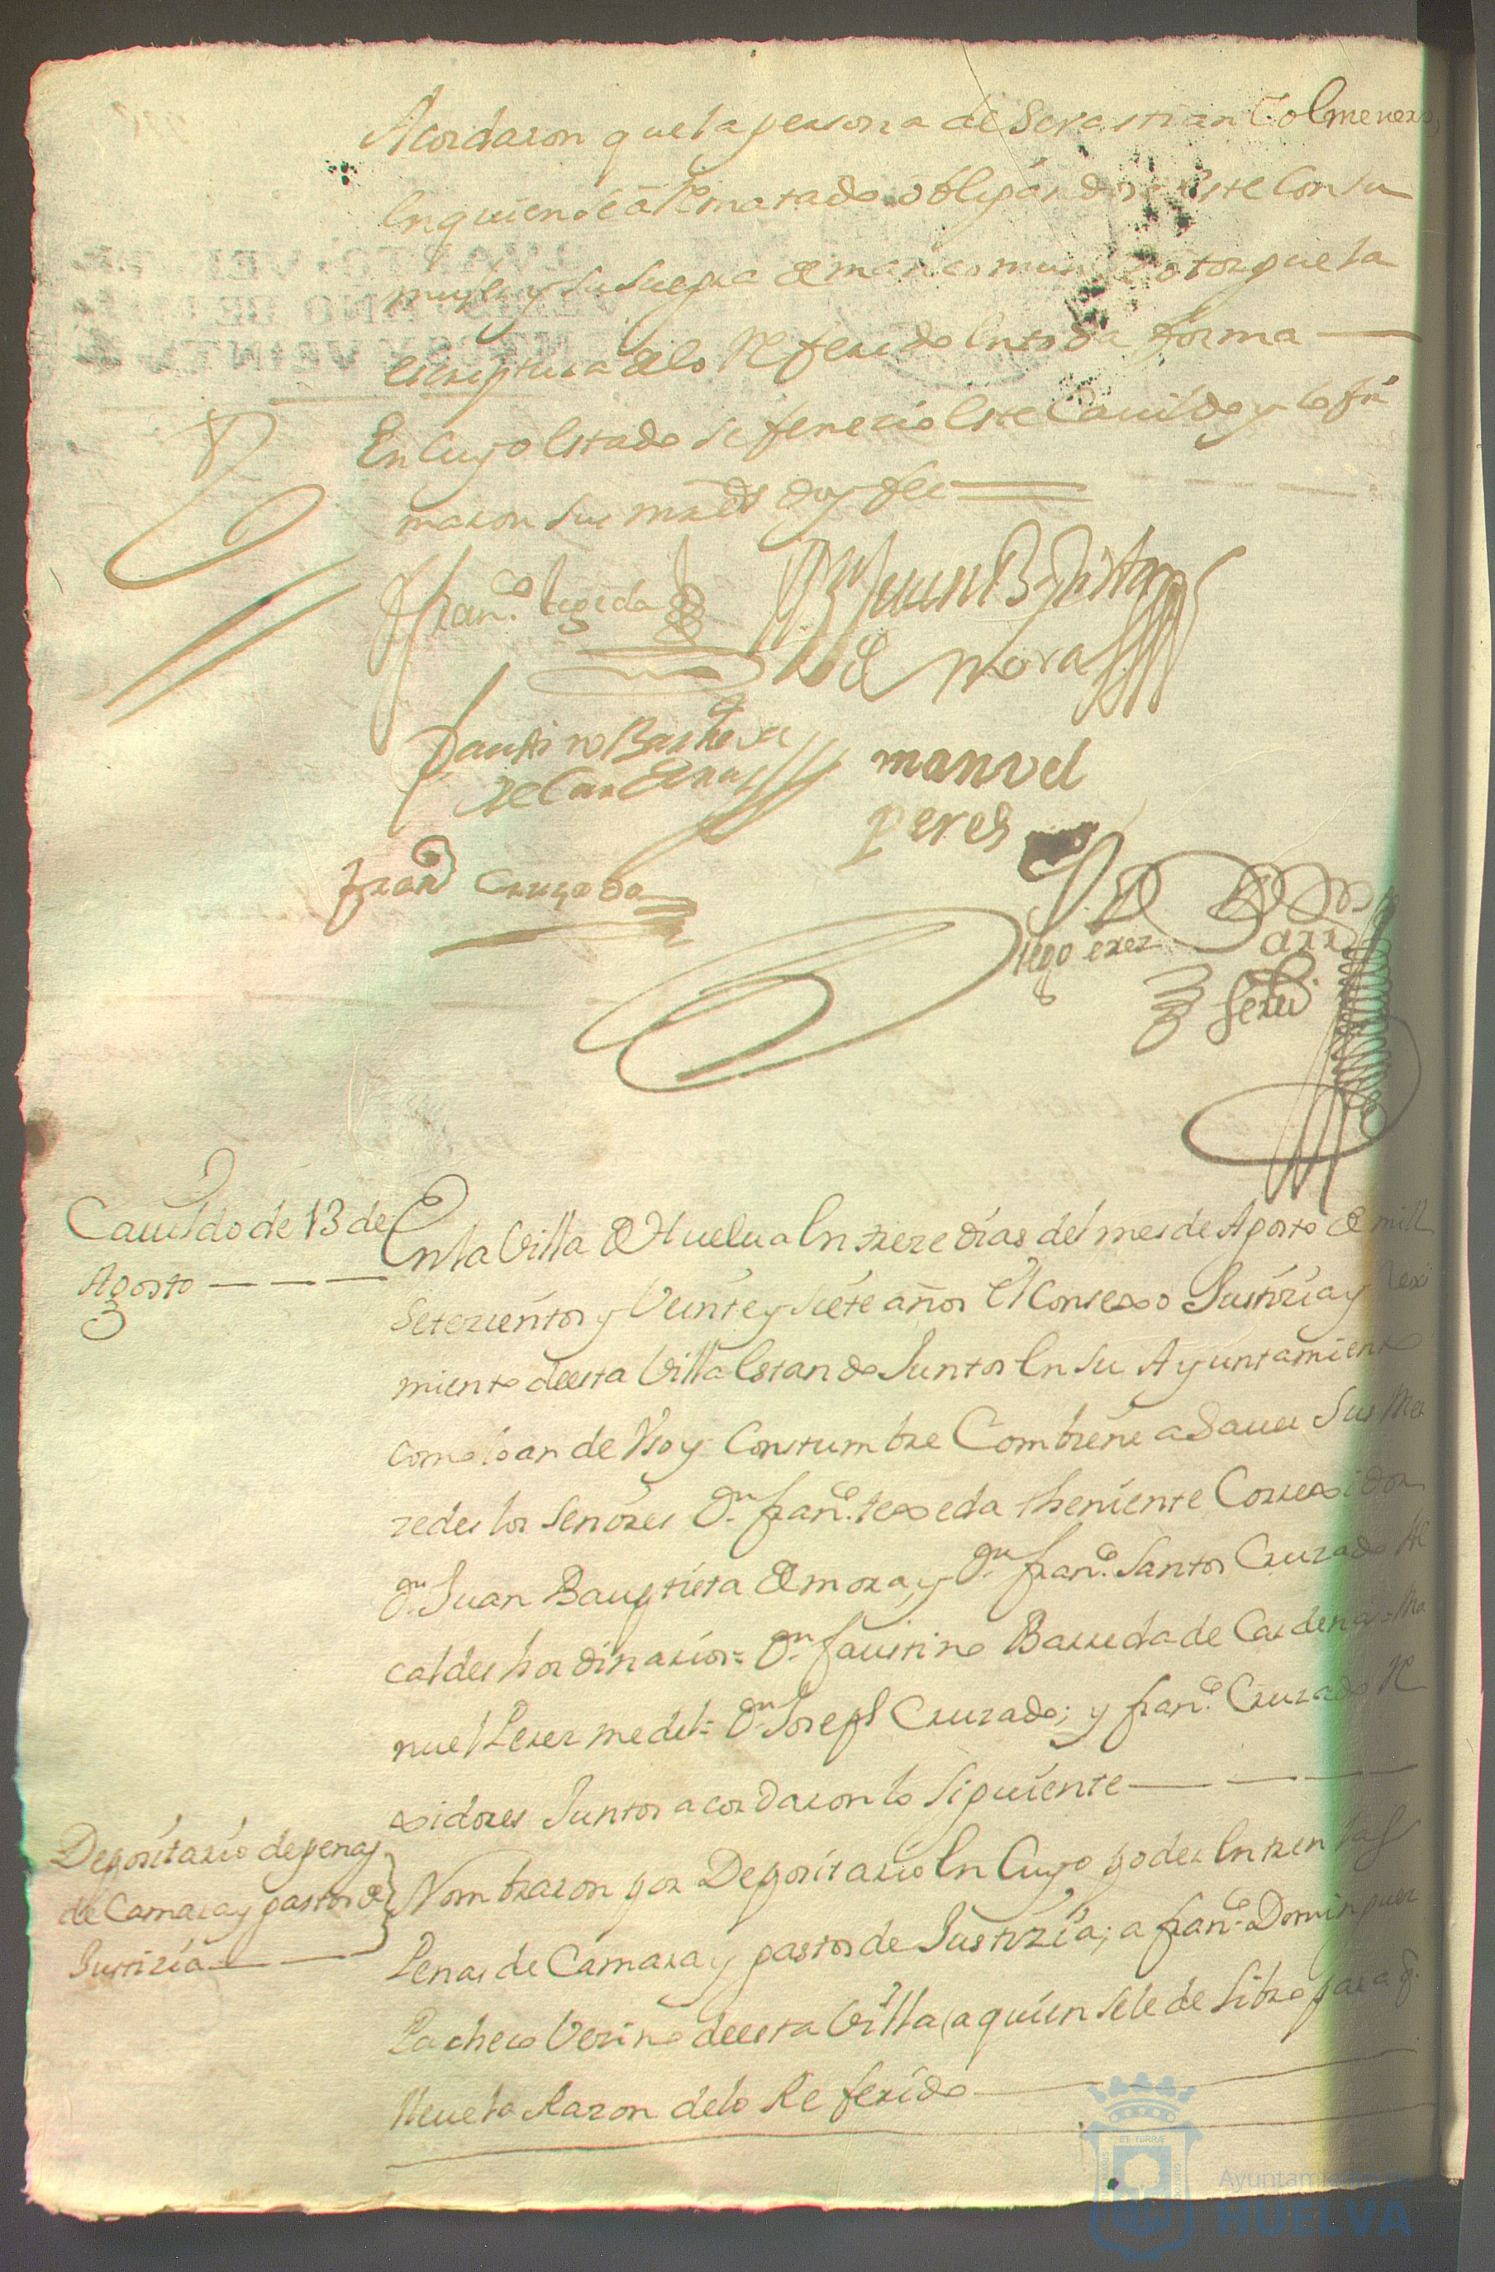 Acordaron que la persona de Sevastian Colmenero,
en quien se â Rematado obligandose este Con su
muger y su suegra de mancomun otorgue la
escriptura de lo Referido en toda forma
En Cuyo estado se fenecio este Cauildo y lo fir
maron sus mrds doy fee
Franco. tegeda
Dn Juan Baptista
de Mora
Faustino Barreda
de Cardenas
manvel
peres
Franco Cruzado
Diego Perez
Cauildo de 13 de
Agosto
En la Villa de Huelua en treze dias del mes de Agosto de mill
setezientos y Veinte y siete años el Consexo Justizia y Rexi
miento desta Villa estando Juntos en su Ayuntamiento
como lo an de Vso y Constumbre Combiene a Sauer Sus Mer
zedes los señores Dn. Franco. texeda theniente Correxidor
Dn. Juan Bauptista de mora, y Dn. Franco. Santos Cruzado Al
caldes hordinarios= Dn. Faustino Barreda de Cardenas= Ma
nuel Perez medel= Dn. Joseph Cruzado; y Franco. Cruzado Re
xidores Juntos acordaron lo siguiente
Depositario de penas
de Camara y gastos de
Justizia
Nombraron por Depositario en Cuyo poder entren las
Penas de Camara y gastos de Justizia; a Franco. Dominguez
Pacheco Vezino desta Villa a quien se le de Libro para q.
lleue la Razon de lo Referido
Ayuntamiento de
HUELVA